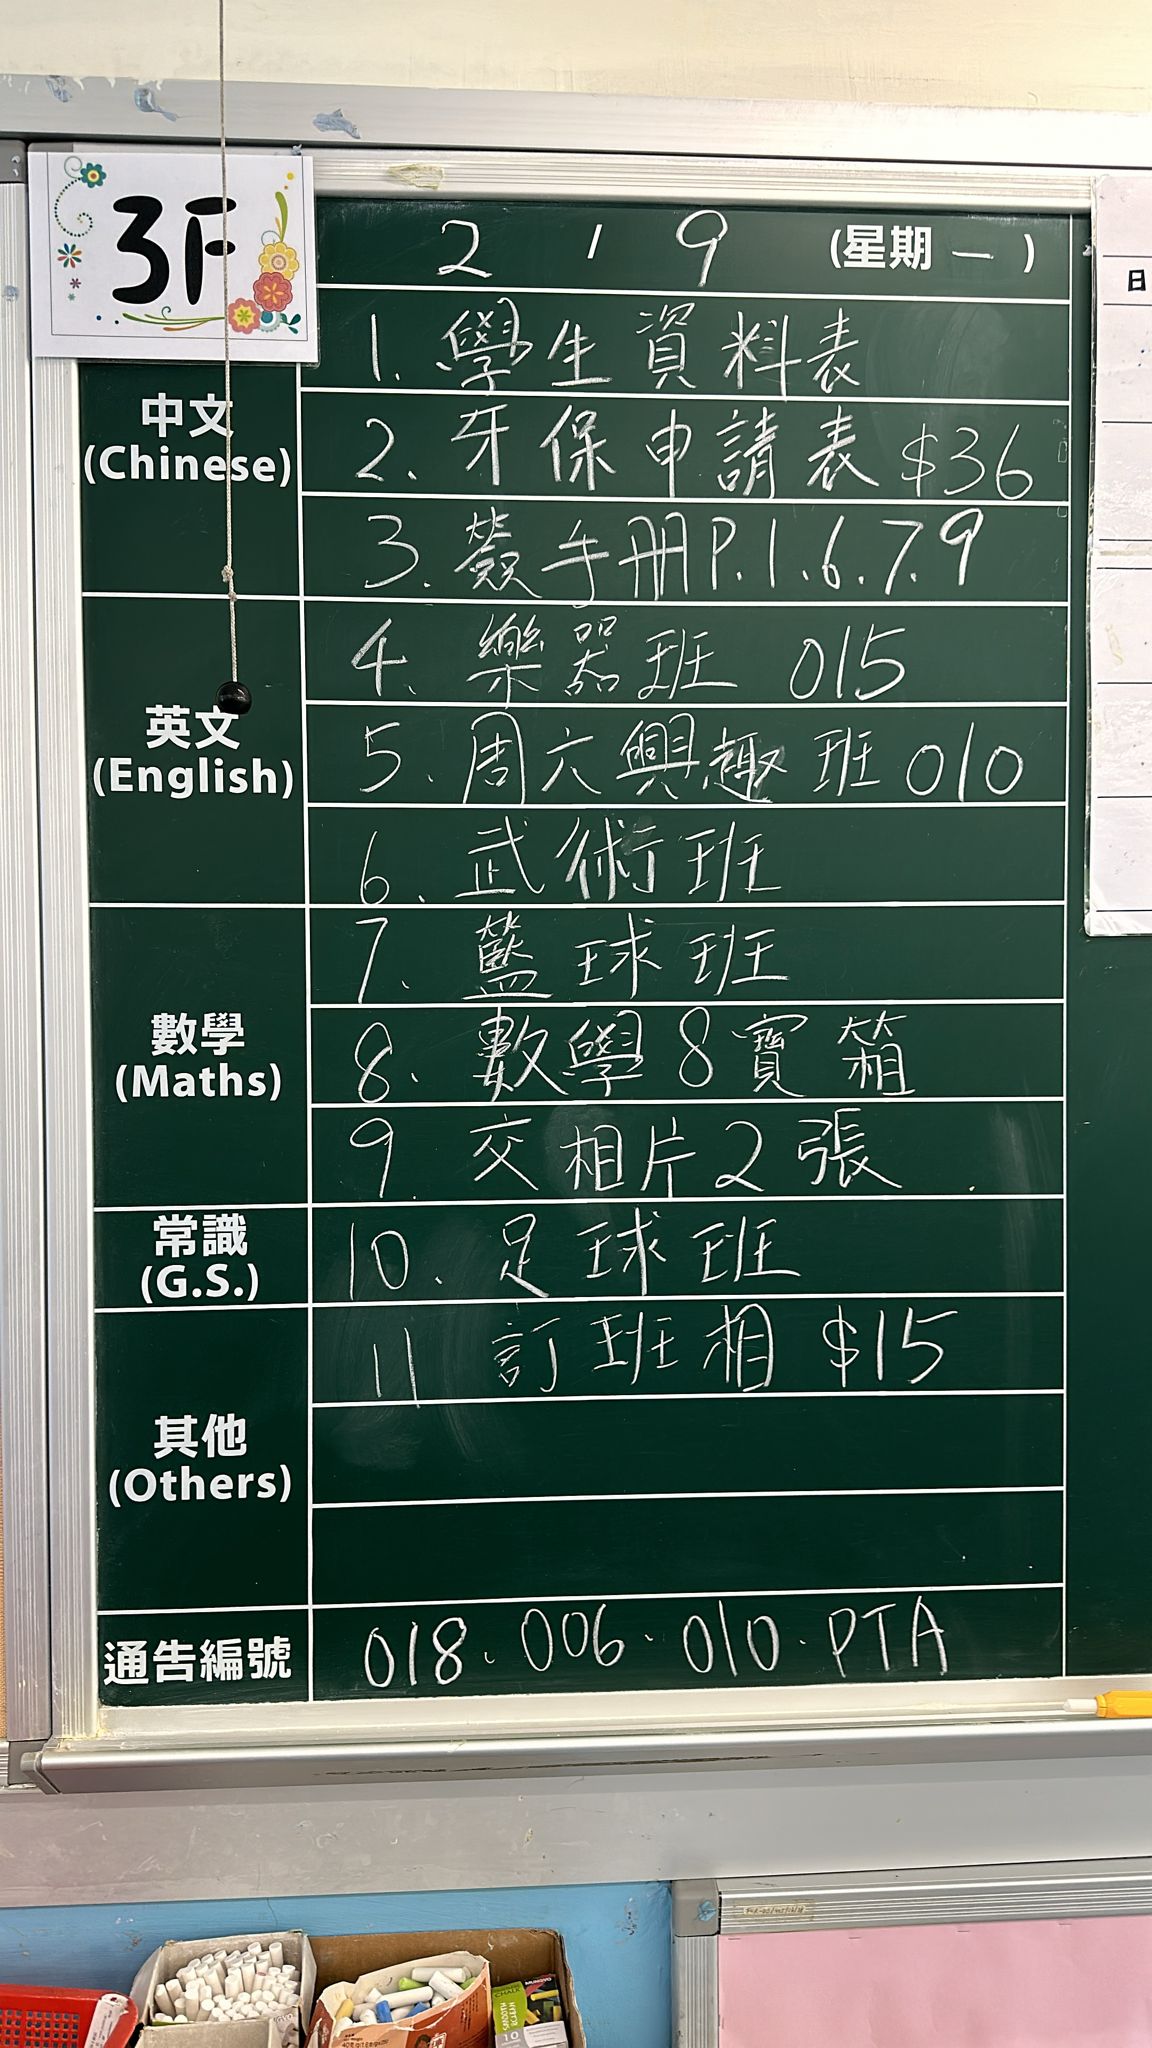 3F
2 / 9 (星期一)
中文
(Chinese)
1. 學生資料表
2. 牙保申請表 $36
3. 簽手冊P.1.6.7.9
英文
(English)
4. 樂器班 015
5. 周六興趣班 010
6. 武術班
數學
(Maths)
7. 籃球班
8. 數學8寶箱
9. 交相片2張
常識
(G.S.)
10. 足球班
其他
(Others)
11 訂班相 $15
通告編號
018. 006. 010. PTA
日